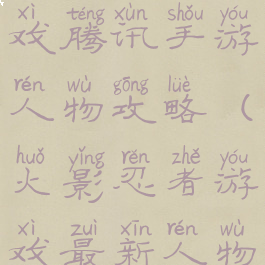 xì téng xùn shǒu yóu
戏腾讯手游
rén wù gōng lüè
人物攻略（
huǒ yǐng rěn zhě yóu
火影忍者游
xì zuì xīn rén wù
戏最新人物